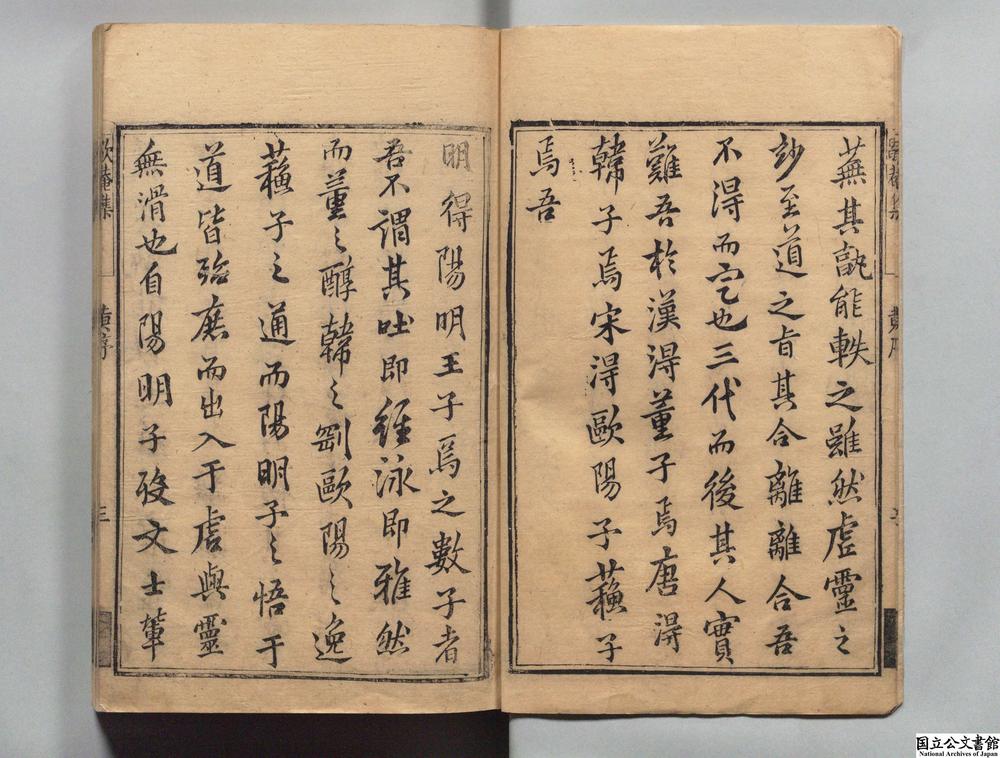 蕪其孰能軼之雖然虛靈之
玅至道之旨其合離離合吾
不得而定也三代而後其人實
難吾於漢得董子焉唐得
韓子焉宋得歐陽子蘓子
焉吾
明得陽明王子焉之數子者
吾不謂其吐即經泳即雅然
而董之醇韓之劌歐陽之逸
蘓子之通而陽明子之悟于
道皆殆庶而出入于虛與靈
無滑也自陽明子歿文士輩
黄序
三
国立公文書館
National Archives of Japan